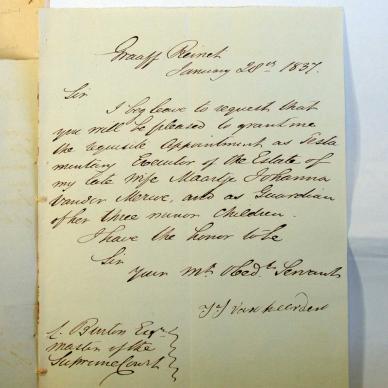 Graaff Reinet
January 28th 1837.
Sir
I beg leave to request that
you will be pleased to grant me
the requisite Appointment as Testa
mentary Executor of the Estate of
my late Wife Maartje Johanna
Vander Merwe, and as Guardian
of her three minor Children.
I have the honor to be
Sir
Your Mt Obedt Servant
van heerden
Burton Esqr
master of the
Supreme Court